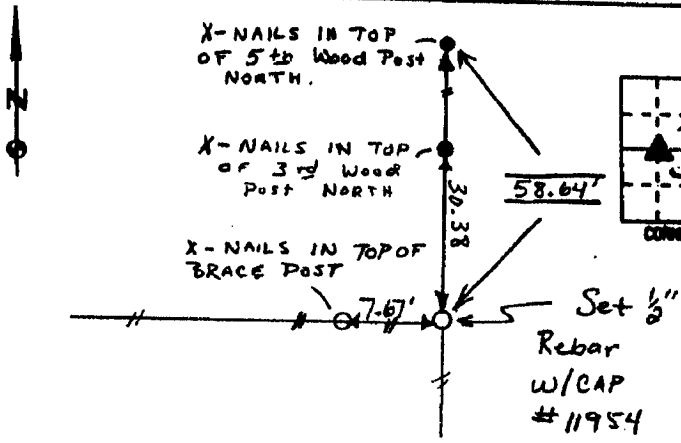 X-NAILS IN TOP
OF 5th Wood Post
NORTH.
N
X-NAILS IN TOP
OF 3rd Wood
Post NORTH
30.38
58.64'
X-NAILS IN TOP OF
BRACE POST
7.67'
Set 1/2"
Rebar
W/CAP
# 11954